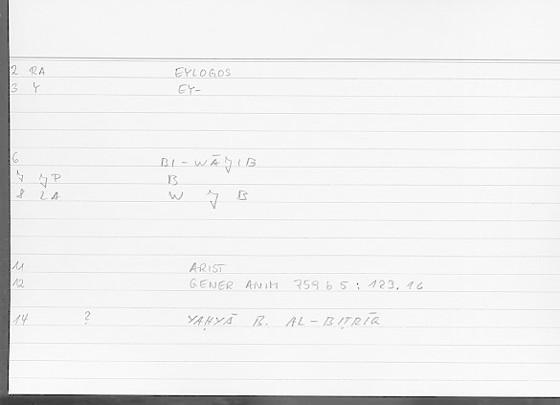 2 RA EYLOGOS
3 Y EY-
6 BI-WĀǦIB
7 ǦP B
8 LA W Ǧ B
11 ARIST
12 GENER ANIM 759 b 5 : 123.16
14 ? YAḤYĀ B. AL-BIṬRĪQ